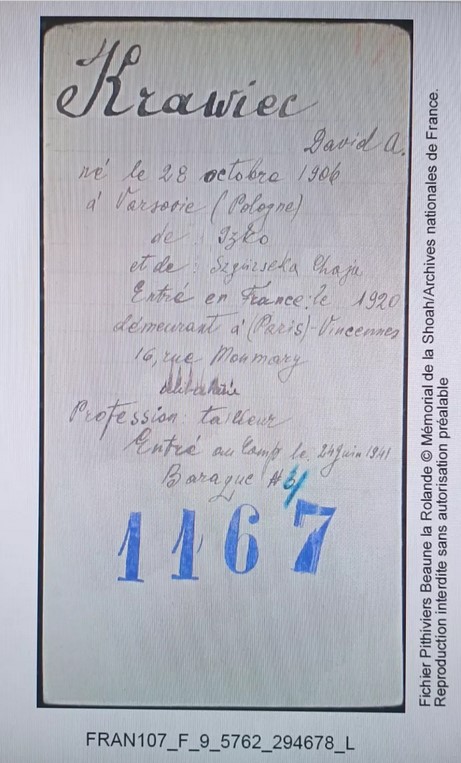 Krawiec
David A.
né le 28 octobre 1906
à Varsovie (Pologne)
de : Izko
et de : Szgürseka Chaja
Entré en France: le 1920
démeurant à (Paris)-Vincennes
16, rue Monmory
Profession: tailleur
Entré au Camp le 24 juin 1941
Baraque #
1167
Fichier Pithiviers Beaune la Rolande © Mémorial de la Shoah/Archives nationales de France.
Reproduction interdite sans autorisation préalable
FRAN107_F_9_5762_294678_L